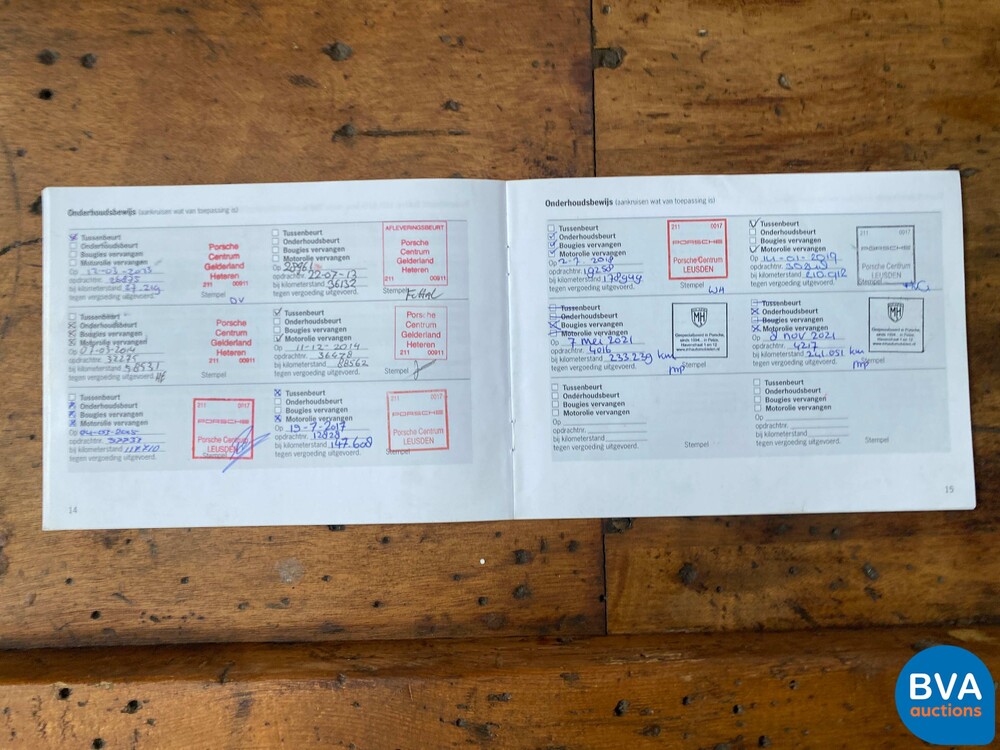 Onderhoudsbewijs (aankruisen wat van toepassing is)
Tussenbeurt
Onderhoudsbeurt
Bougies vervangen
Motorolie vervangen
Op 12-03-2013
opdrachtnr.
bij kilometerstand
tegen vergoeding uitgevoerd.
Porsche
Centrum
Gelderland
Heteren
211 00911
Stempel
DV
Tussenbeurt
Onderhoudsbeurt
Bougies vervangen
Motorolie vervangen
Op 28961
opdrachtnr. 22-07-13
bij kilometerstand 36132
tegen vergoeding uitgevoerd.
AFLEVERINGSBEURT
Porsche
Centrum
Gelderland
Heteren
211 00911
Stempel
Tussenbeurt
Onderhoudsbeurt
Bougies vervangen
Motorolie vervangen
Op
opdrachtnr. 32275
bij kilometerstand 58531
tegen vergoeding uitgevoerd.
Porsche
Centrum
Gelderland
Heteren
211 00911
Stempel
Tussenbeurt
Onderhoudsbeurt
Bougies vervangen
Motorolie vervangen
Op 11-12-2014
opdrachtnr. 36478
bij kilometerstand 88562
tegen vergoeding uitgevoerd.
Porsche
Centrum
Gelderland
Heteren
211 00911
Stempel
Tussenbeurt
Onderhoudsbeurt
Bougies vervangen
Motorolie vervangen
Op
opdrachtnr.
bij kilometerstand
tegen vergoeding uitgevoerd.
211 0017
PORSCHE
Porsche Centrum
LEUSDEN
Stempel
Tussenbeurt
Onderhoudsbeurt
Bougies vervangen
Motorolie vervangen
Op 19-7-2017
opdrachtnr.
bij kilometerstand 147.609
tegen vergoeding uitgevoerd.
211 0017
PORSCHE
Porsche Centrum
LEUSDEN
Stempel
14
Onderhoudsbewijs (aankruisen wat van toepassing is)
Tussenbeurt
Onderhoudsbeurt
Bougies vervangen
Motorolie vervangen
Op 2-7-2018
opdrachtnr. 19258
bij kilometerstand 178949
tegen vergoeding uitgevoerd.
211 0017
PORSCHE
Porsche Centrum
LEUSDEN
Stempel
WH
Tussenbeurt
Onderhoudsbeurt
Bougies vervangen
Motorolie vervangen
Op 14-01-2019
opdrachtnr.
bij kilometerstand 210.912
tegen vergoeding uitgevoerd.
211 0017
PORSCHE
Porsche Centrum
LEUSDEN
Stempel
Tussenbeurt
Onderhoudsbeurt
Bougies vervangen
Motorolie vervangen
Op 7 mei 2021
opdrachtnr. 4016
bij kilometerstand 233.239 km
tegen vergoeding uitgevoerd.
MH
Stempel
MP
Tussenbeurt
Onderhoudsbeurt
Bougies vervangen
Motorolie vervangen
Op 8 nov 2021
opdrachtnr. 4217
bij kilometerstand 241.051 km
tegen vergoeding uitgevoerd.
MH
Stempel
MP
Tussenbeurt
Onderhoudsbeurt
Bougies vervangen
Motorolie vervangen
Op
opdrachtnr.
bij kilometerstand
tegen vergoeding uitgevoerd.
Stempel
Tussenbeurt
Onderhoudsbeurt
Bougies vervangen
Motorolie vervangen
Op
opdrachtnr.
bij kilometerstand
tegen vergoeding uitgevoerd.
Stempel
15
BVA
auctions